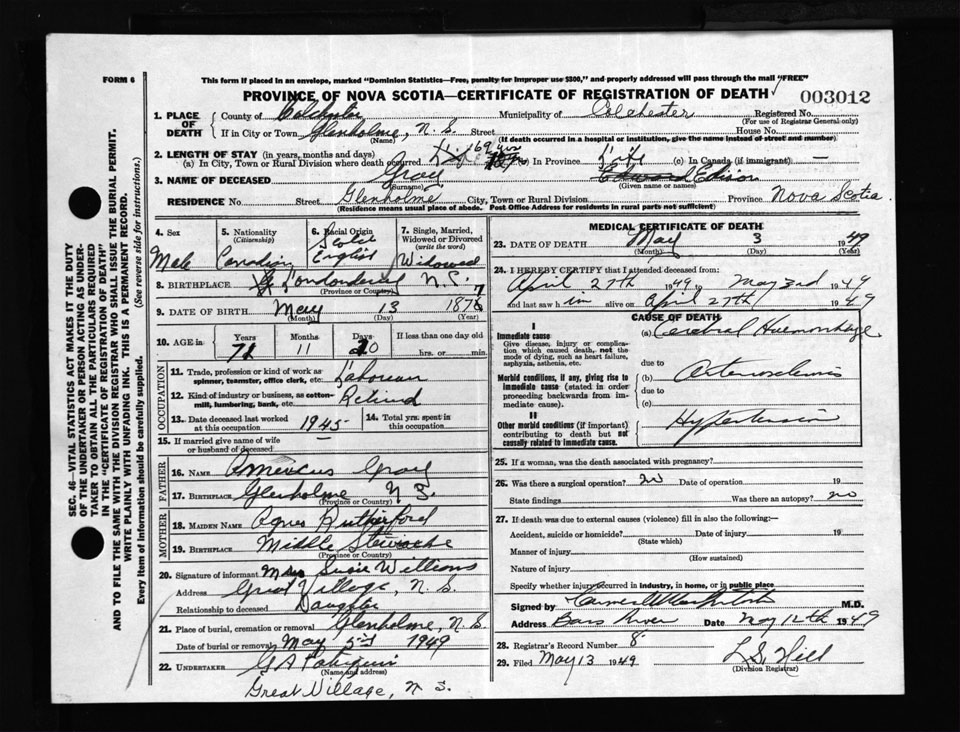 FORM 6
This form if placed in an envelope, marked "Dominion Statistics—Free, penalty for improper use $300," and properly addressed will pass through the mail "FREE"
PROVINCE OF NOVA SCOTIA—CERTIFICATE OF REGISTRATION OF DEATH 003012
SEC. 46—VITAL STATISTICS ACT MAKES IT THE DUTY
OF THE UNDERTAKER OR PERSON ACTING AS UNDER-
TAKER TO OBTAIN ALL THE PARTICULARS REQUIRED
IN THE "CERTIFICATE OF REGISTRATION OF DEATH"
AND TO FILE THE SAME WITH THE DIVISION REGISTRAR WHO SHALL ISSUE THE BURIAL PERMIT.
WRITE PLAINLY WITH UNFADING INK. THIS IS A PERMANENT RECORD.
Every item of Information should be carefully supplied. (See reverse side for instructions.)
1. PLACE OF DEATH County of Colchester Municipality of Colchester Registered No.
(For use of Registrar General only)
If in City or Town Glenholme, N. S. Street House No.
(Name) (If death occurred in a hospital or institution, give the name instead of street and number)
2. LENGTH OF STAY (in years, months and days)
(a) In City, Town or Rural Division where death occurred 69 yrs (b) in Province Life (c) In Canada (if immigrant) —
3. NAME OF DECEASED Gray Edward Edison
(Surname) (Given name or names)
RESIDENCE No. Street Glenholme City, Town or Rural Division Province Nova Scotia.
(Residence means usual place of abode. Post Office Address for residents in rural parts not sufficient)
4. Sex 5. Nationality (Citizenship) 6. Racial Origin 7. Single, Married, Widowed or Divorced (write the word)
Male Canadian Scotch English Widowed
8. BIRTHPLACE Londonderry N.S.
(Province or Country)
9. DATE OF BIRTH May 13 1877
(Month) (Day) (Year)
10. AGE in Years Months Days If less than one day
71 11 20 hrs. or min.
OCCUPATION
11. Trade, profession or kind of work as spinner, teamster, office clerk, etc. Labourer
12. Kind of industry or business, as cotton-mill, lumbering, bank, etc. Retired
13. Date deceased last worked at this occupation 1945 14. Total yrs. spent in this occupation
15. If married give name of wife or husband of deceased
FATHER
16. NAME Americus Gray
17. BIRTHPLACE Glenholme N S.
(Province or Country)
MOTHER
18. MAIDEN NAME Agnes Rutherford
19. BIRTHPLACE Middle Stewiacke
(Province or Country)
20. Signature of informant Mrs Susie Williams
Address Great Village, N. S.
Relationship to deceased Daughter
21. Place of burial, cremation or removal Glenholme, N. S.
Date of burial or removal May 5th 1949
22. UNDERTAKER G A Patriquin
(Name and address)
Great Village, N S.
MEDICAL CERTIFICATE OF DEATH
23. DATE OF DEATH May 3 1949
(Month) (Day) (Year)
24. I HEREBY CERTIFY that I attended deceased from:
April 27th 1949 to May 3rd 1949
and last saw him alive on April 27th 1949
CAUSE OF DEATH
I
Immediate cause
Give disease, injury or complication which caused death, not the mode of dying, such as heart failure, asphyxia, asthenia, etc.
(a) Cerebral Haemorrhage
due to
Morbid conditions, if any, giving rise to immediate cause (stated in order proceeding backwards from immediate cause).
(b) Arteriosclerosis
due to
(c)
II
Other morbid conditions (if important) contributing to death but not causally related to immediate cause.
Hypertension
25. If a woman, was the death associated with pregnancy?
26. Was there a surgical operation? no Date of operation 19
State findings Was there an autopsy? no
27. If death was due to external causes (violence) fill in also the following:—
Accident, suicide or homicide? Date of injury 19
(State which)
Manner of injury
(How sustained)
Nature of injury
Specify whether injury occurred in industry, in home, or in public place
Signed by M.D.
Address Bass River Date May 12th 1949
28. Registrar's Record Number 8.
29. Filed May 13 1949 L S. Hill
(Division Registrar)